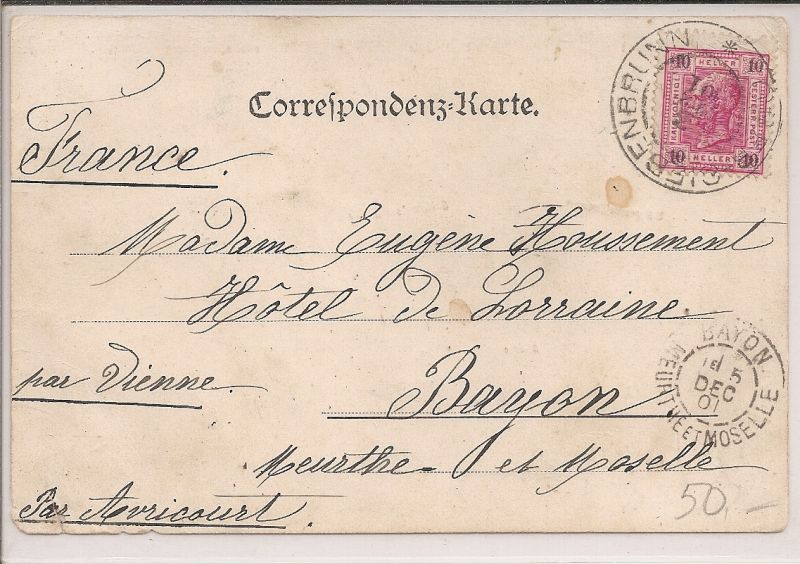 Correspondenz-Karte.
SIEBENBRUNN *
10 HELLER 10
KAIS. KOENIGL.
OESTERR. POST
10 HELLER 10
France.
Madame Eugène Houssement
Hôtel de Lorraine
par Vienne.
Bayon
Meurthe-et Moselle
Par Avricourt.
BAYON.
5
DEC
01
MEURTHE ET MOSELLE
50,-